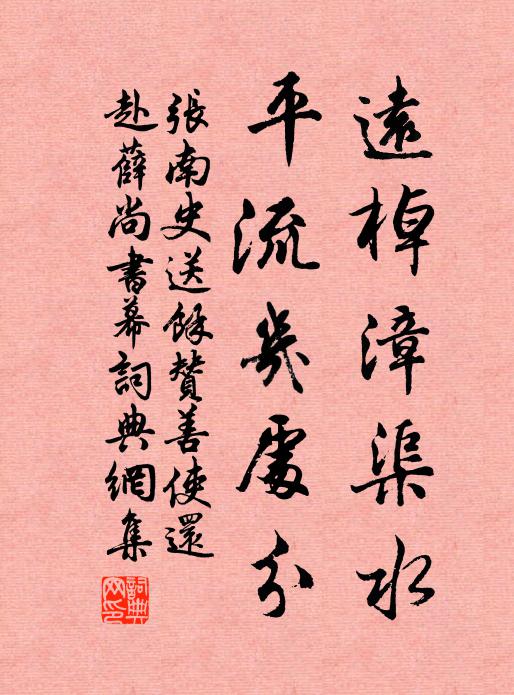 遠棹漳渠水
平流幾處分
張南史送餘贊善使還
赴薛尚書幕詞典網集
詞典网印